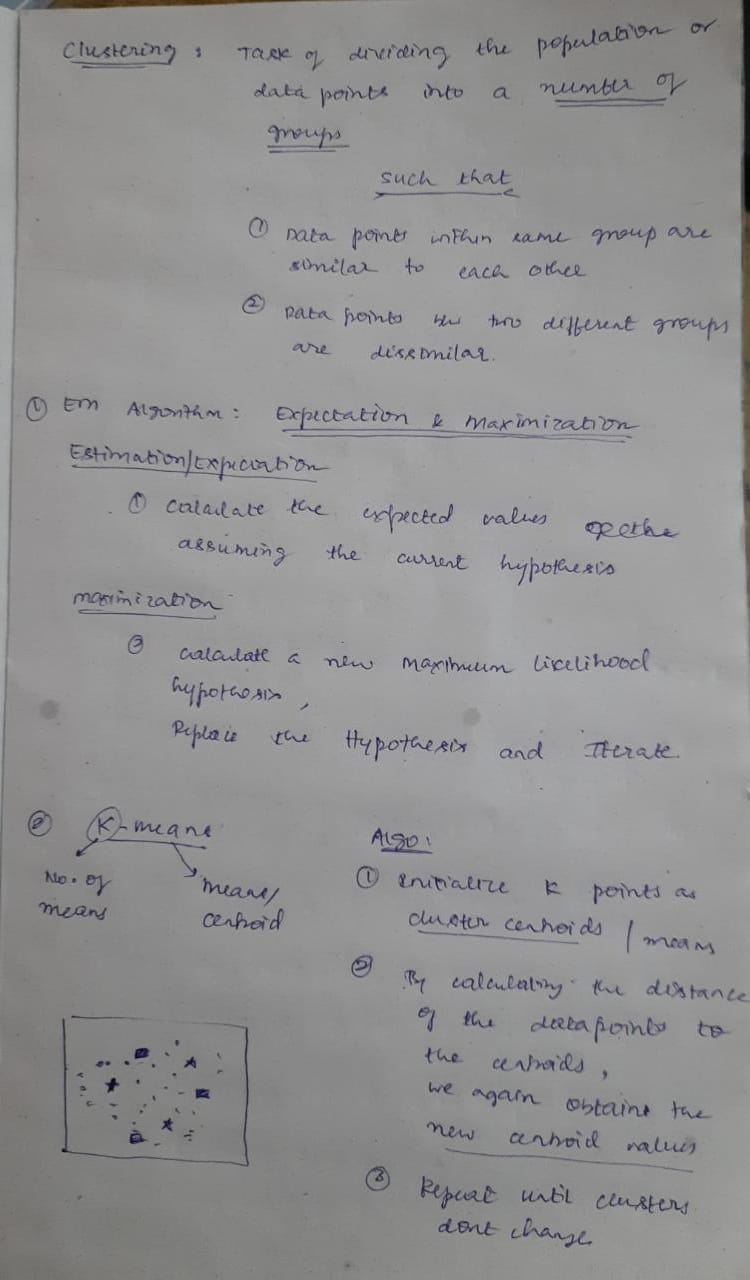 Clustering : Task of dividing the population or
data points into a number of
groups
such that
① Data points within same group are
similar to each other
② Data points b/w two different groups
are dissimilar.
① EM Algorithm : Expectation & Maximization
Estimation/Expectation
① Calculate the expected values
assuming the current hypothesis
maximization
② calculate a new maximum likelihood
hypothesis,
Replace the Hypothesis and Iterate.
② K-means
No. of
means
means/
centroid
Algo:
① Initialize K points as
cluster centroids / means
② By calculating the distance
of the datapoints to
the centroids,
we again obtains the
new centroid values
③ Repeat until clusters
dont change